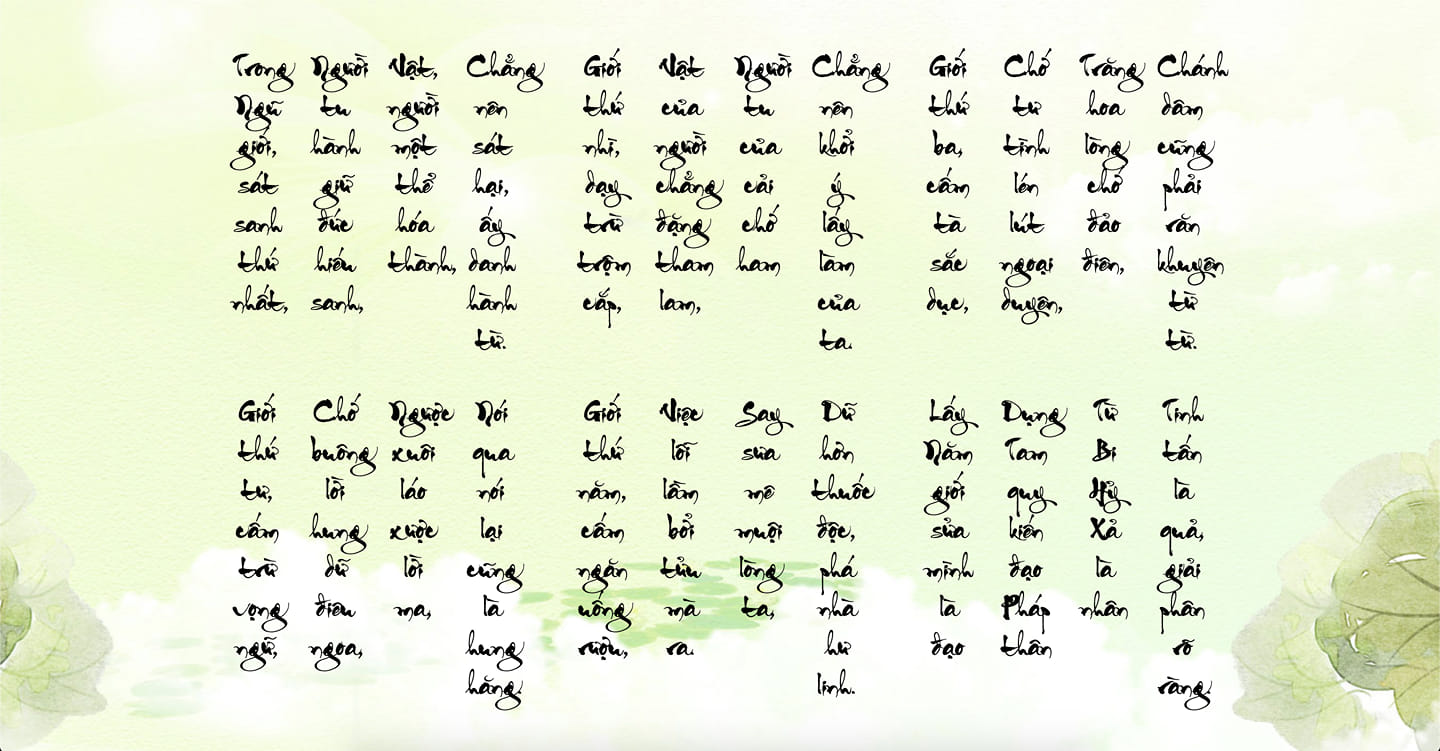 Trong Ngũ giới, sát sanh thứ nhất,
Người tu hành giữ đức hiếu sanh,
Vật, người một thể hóa thành,
Chẳng nên sát hại, ấy danh hành từ.
Giới thứ nhì, dạy trừ trộm cắp,
Vật của người chẳng đặng tham lam,
Người tu của cải chớ ham
Chẳng nên khởi ý lấy làm của ta.
Giới thứ ba, cấm tà sắc dục,
Chớ tư tình lén lút ngoại duyên,
Trăng hoa lòng chớ đảo điên,
Chánh dâm cũng phải răn khuyên từ từ.
Giới thứ tư, cấm trừ vọng ngữ,
Chớ buông lời hung dữ điêu ngoa,
Ngược xuôi láo xược lời ma,
Nói qua nói lại cũng là hung hăng.
Giới thứ năm, cấm ngăn uống rượu,
Việc lỗi lầm bởi tửu mà ra.
Say sưa mê muội lòng ta,
Dữ hơn thuốc độc, phá nhà hư linh.
Lấy Năm giới sửa mình là đạo
Dụng Tam quy kiến đạo Pháp thân
Từ Bi Hỷ Xả là nhân
Tinh tấn là quả, giải phân rõ ràng.